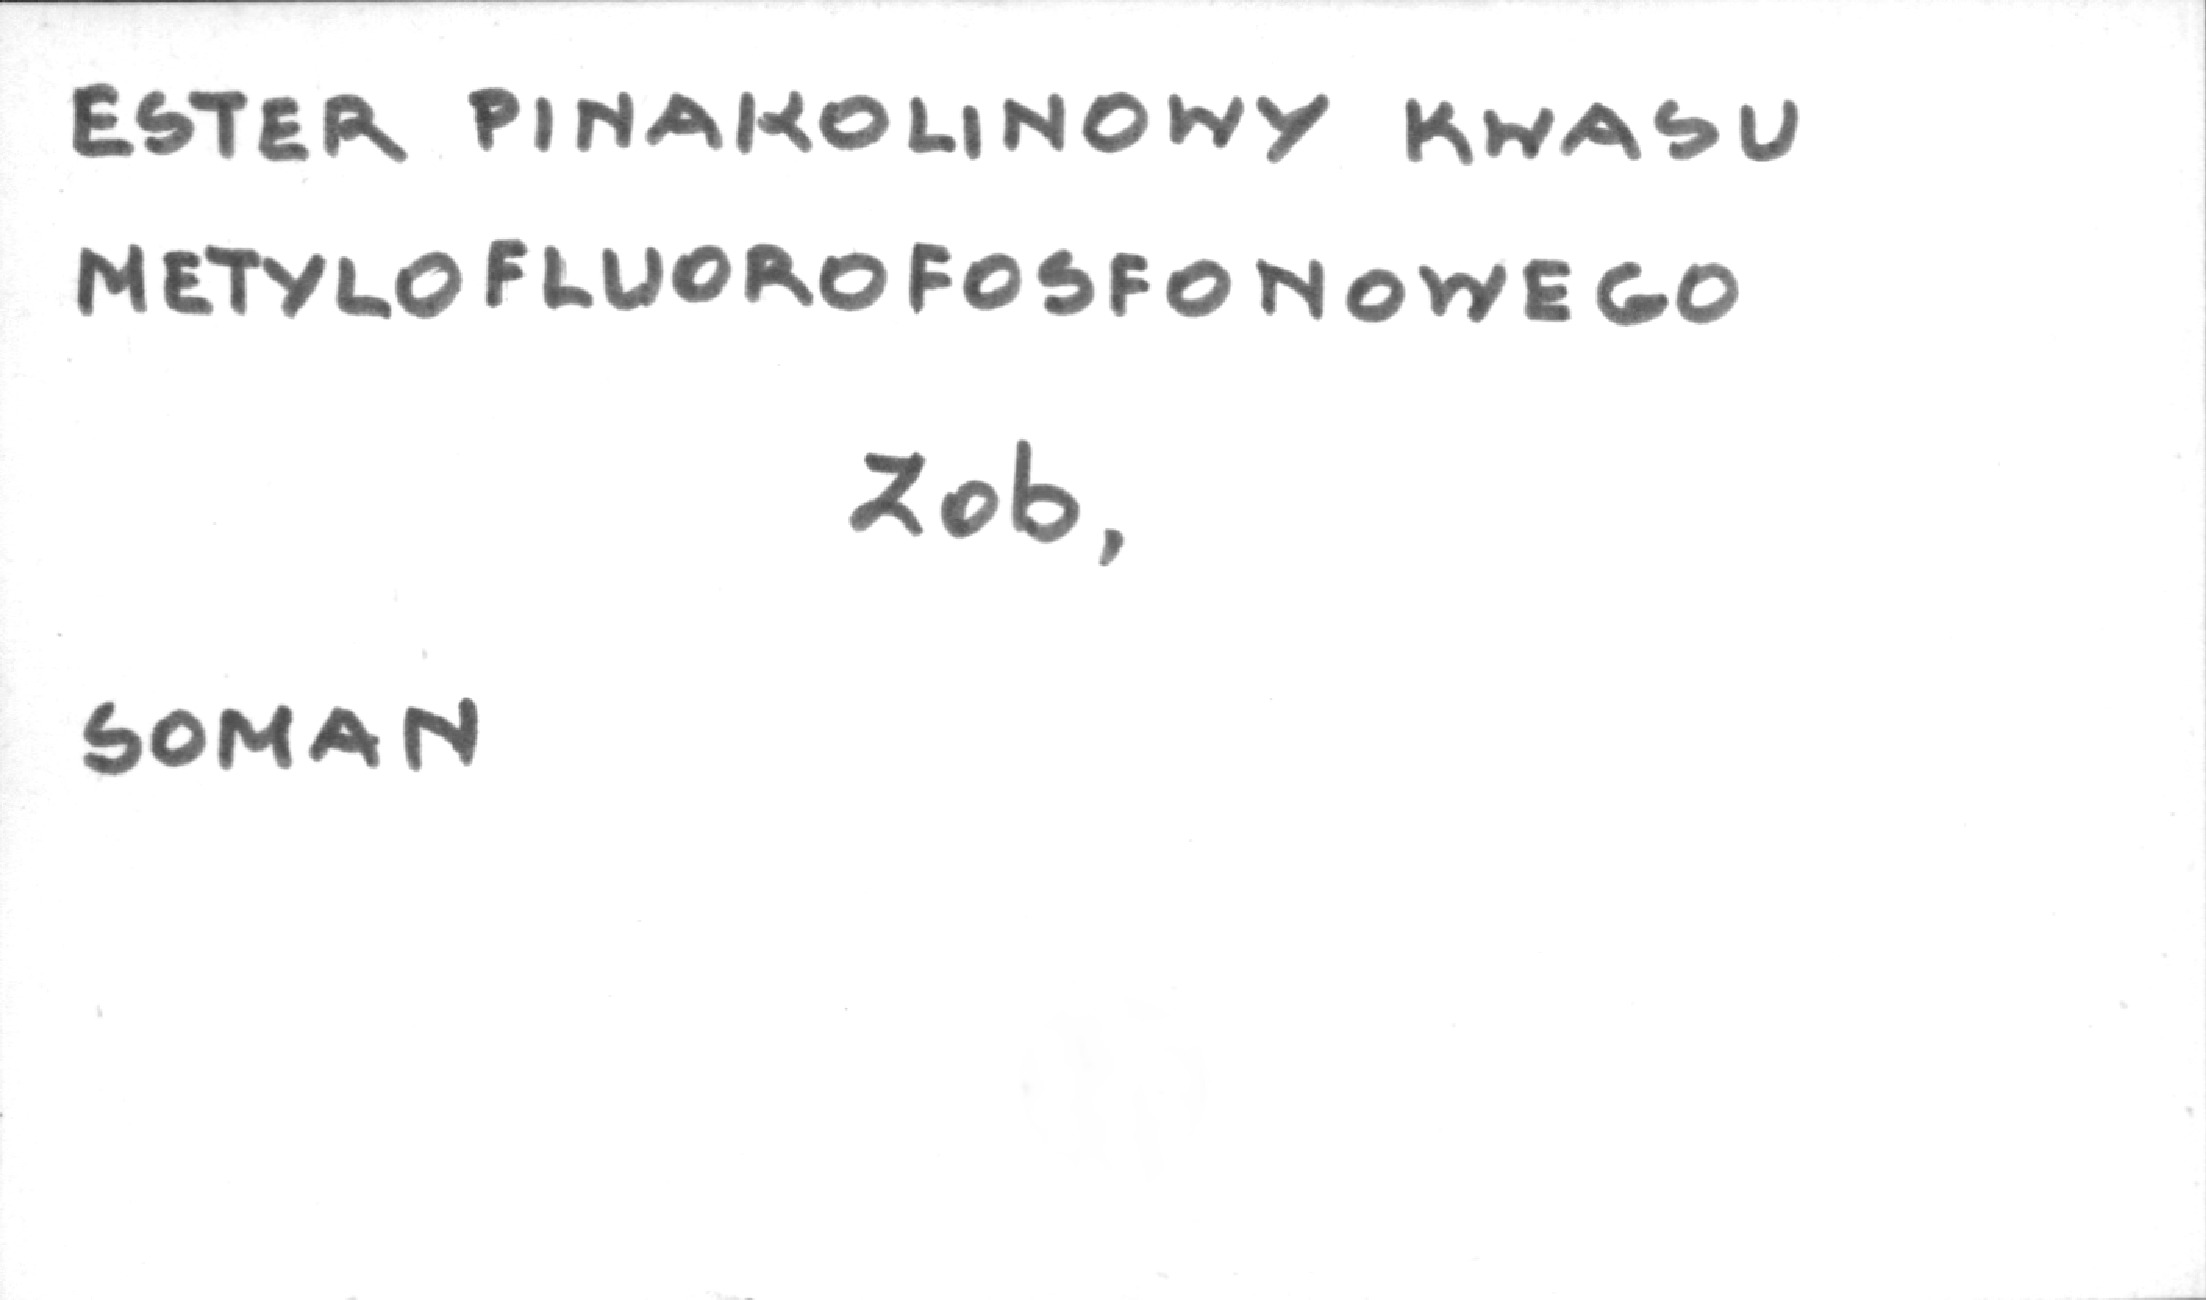 ESTER PINAKOLINOWY KWASU
METYLOFLUOROFOSFONOWEGO
Zob,
SOMAN